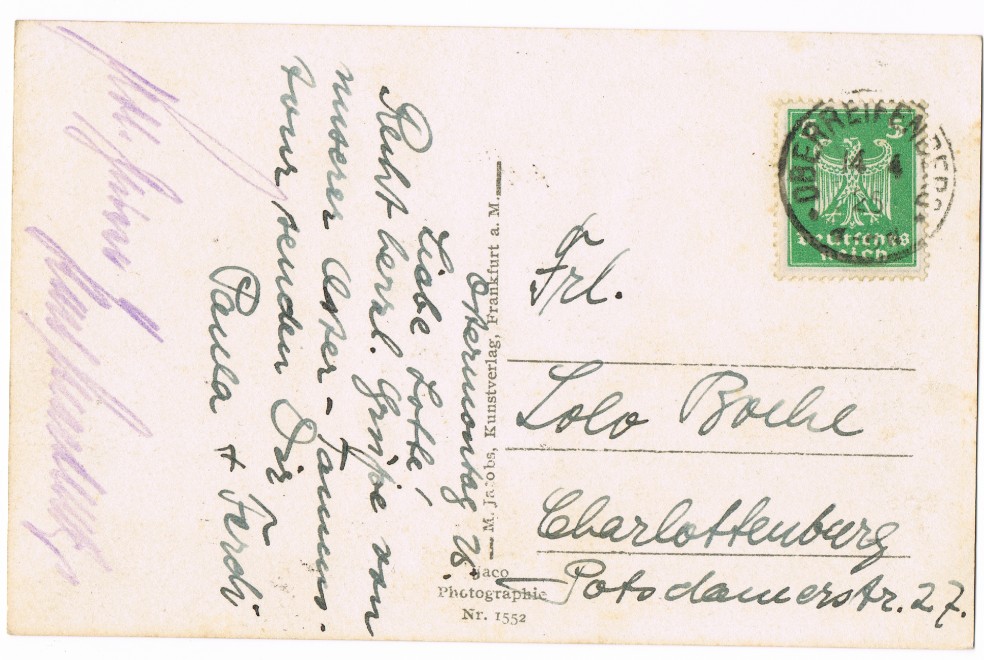 Ostermontag 26.
Liebe Lotte!
Recht herzl. Grüße von
unserer Oster-Taunus-
tour senden Dir
Paula + Ferdi
M. Jacobs, Kunstverlag, Frankfurt a. M.
Jaco
Photographie
Nr. 1552
5
OBERREIFENBERG
14 4
26
Deutsches
Reich
Frl.
Lolo
Charlottenburg
Potsdamerstr. 27.